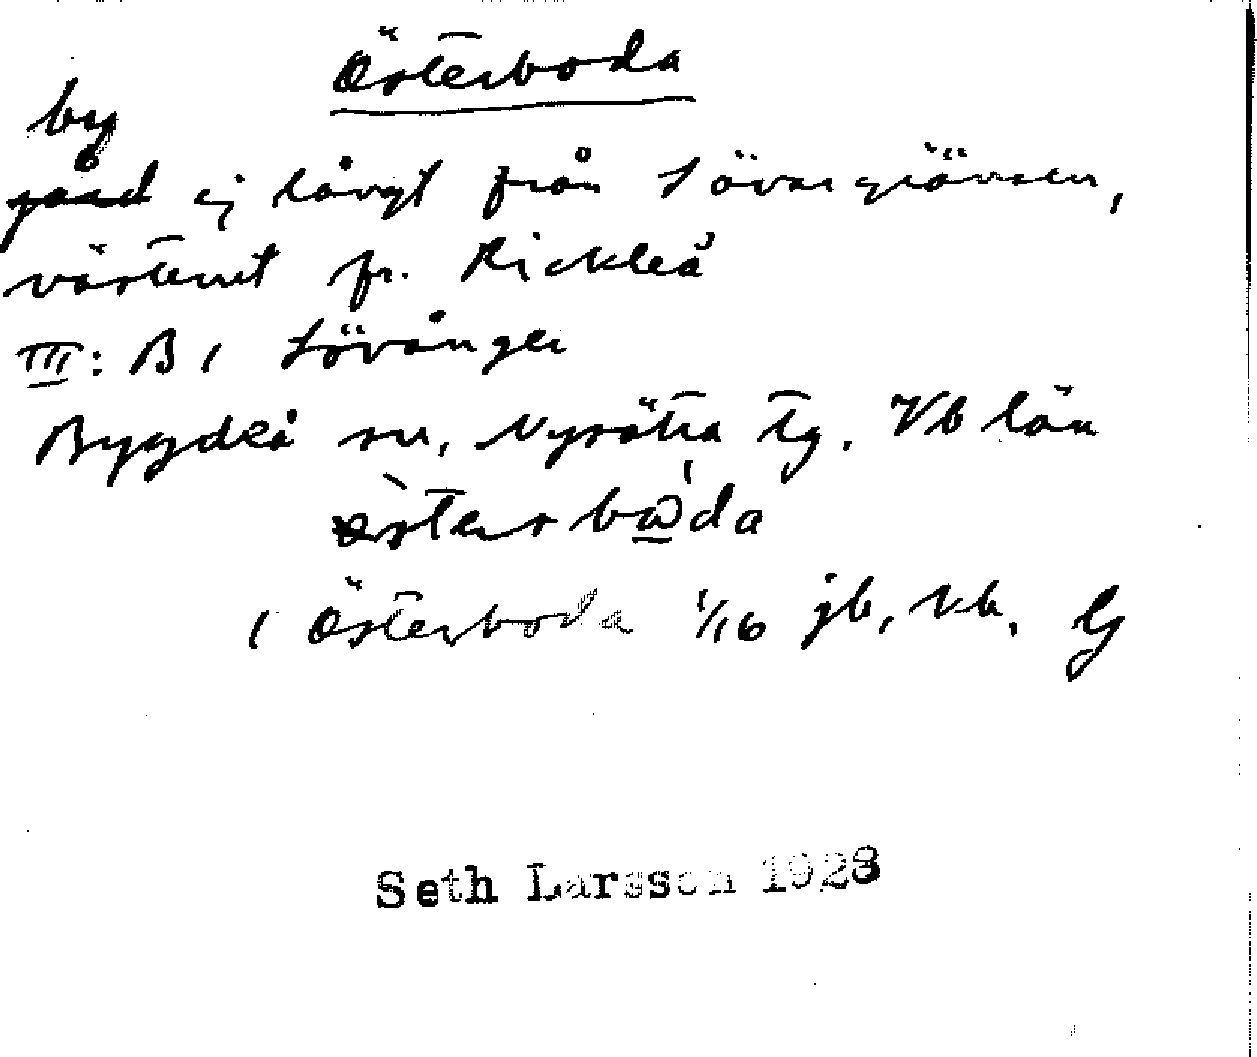 Österboda
by
gård ej långt från Lövångergränsen,
västerut fr. Rickleå
III: B 1 Lövånger
Bygdeå sn, Nysätra tg. Vb län
1 Österboda 1/16 jb, kb,
Seth Larsson 1928